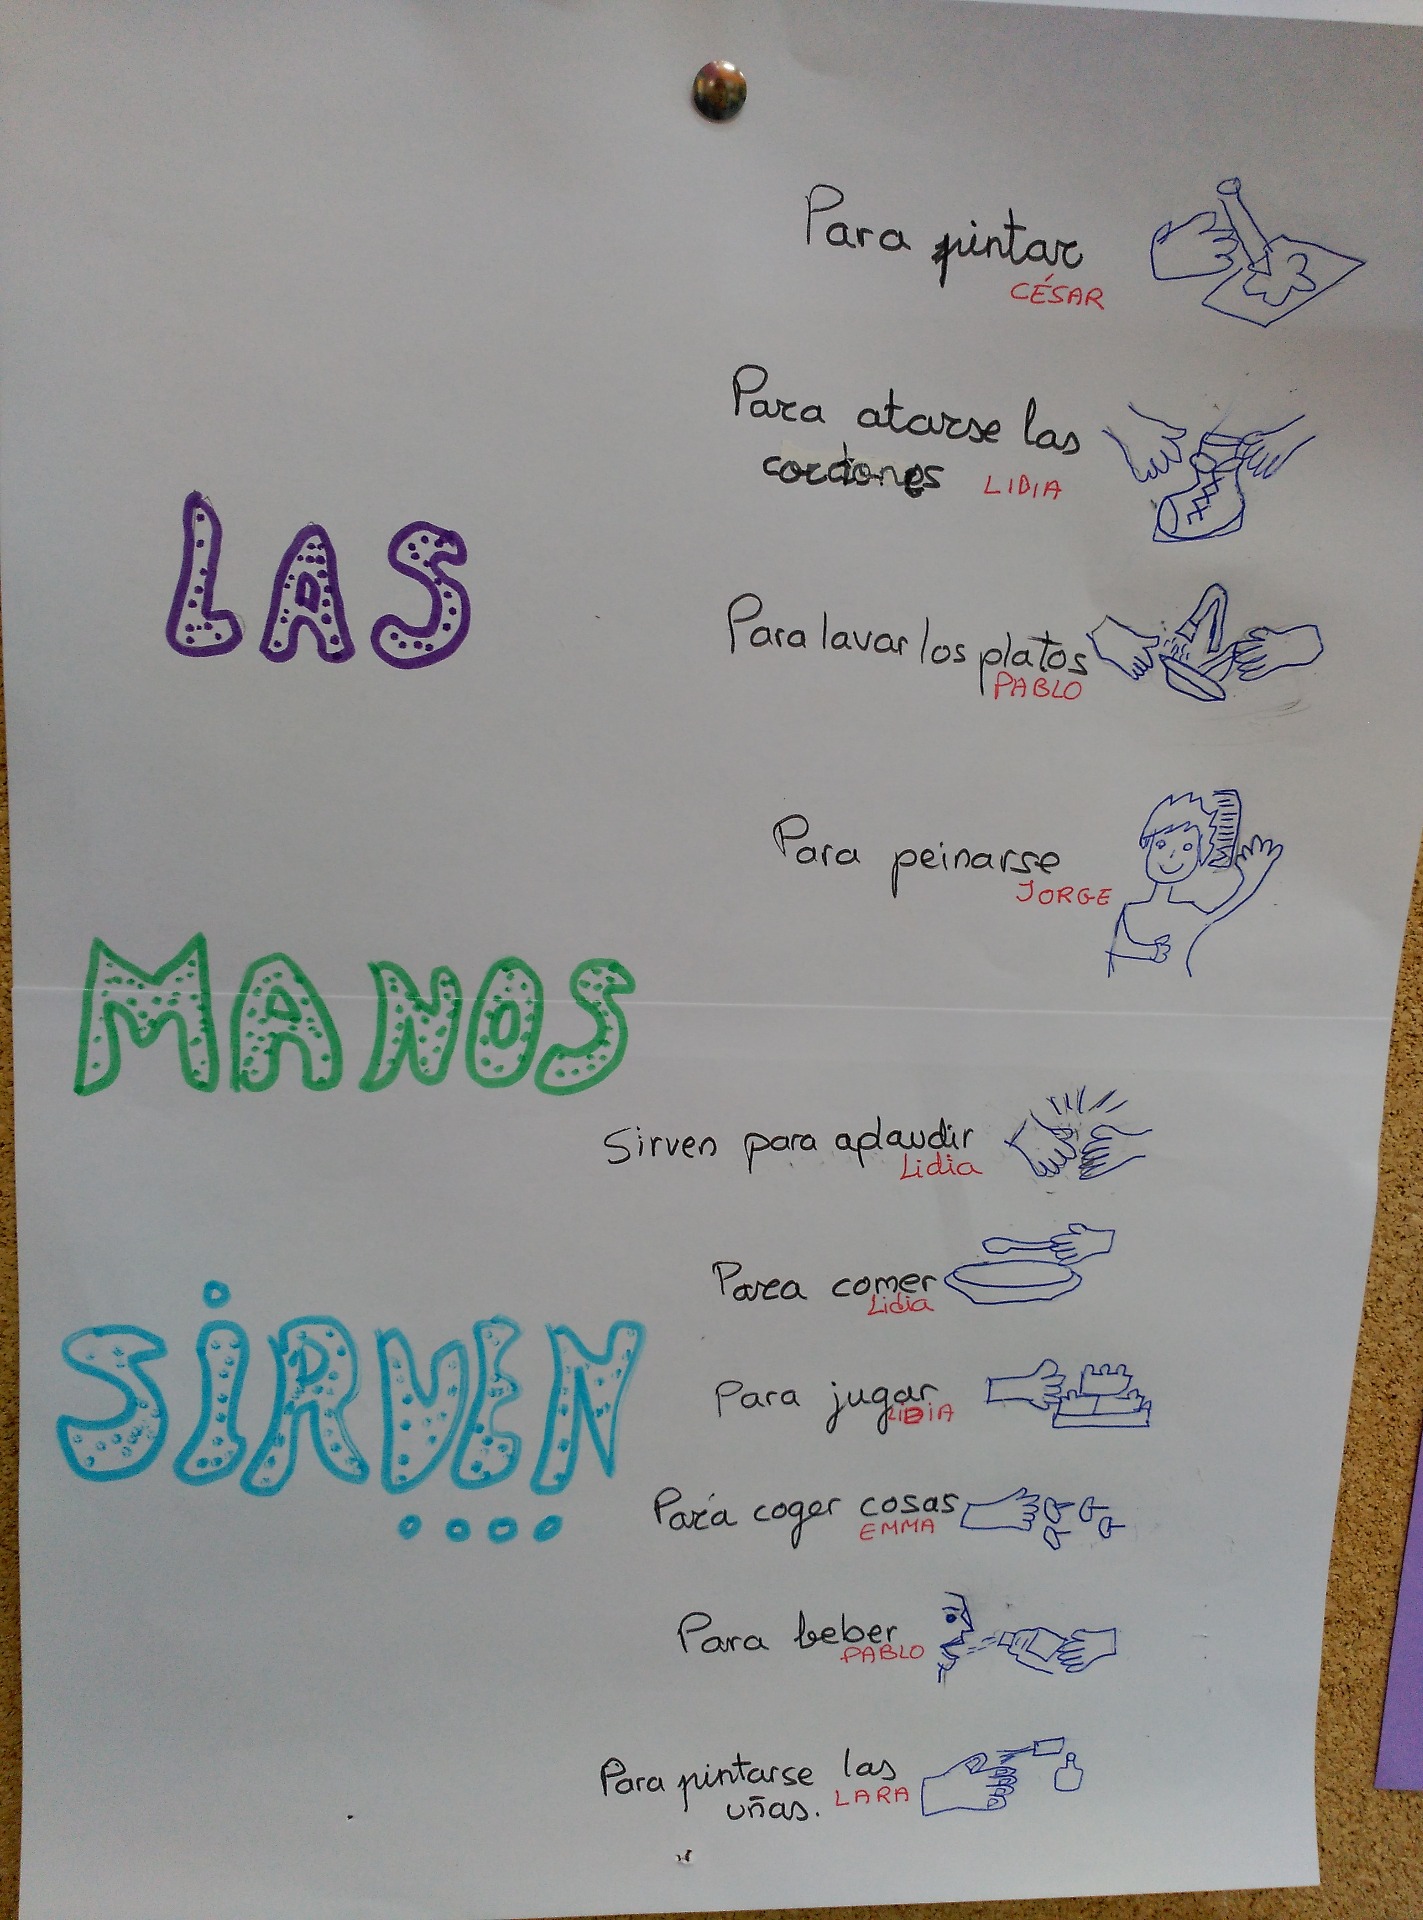 LAS
MANOS
SIRVEN
....
Para pintar
CÉSAR
Para atarse las
cordones LIDIA
Para lavar los platos
PABLO
Para peinarse
JORGE
Sirven para aplaudir
Lidia
Para comer
Lidia
Para jugar
LIDIA
Para coger cosas
EMMA
Para beber
PABLO
Para pintarse las
uñas. LARA